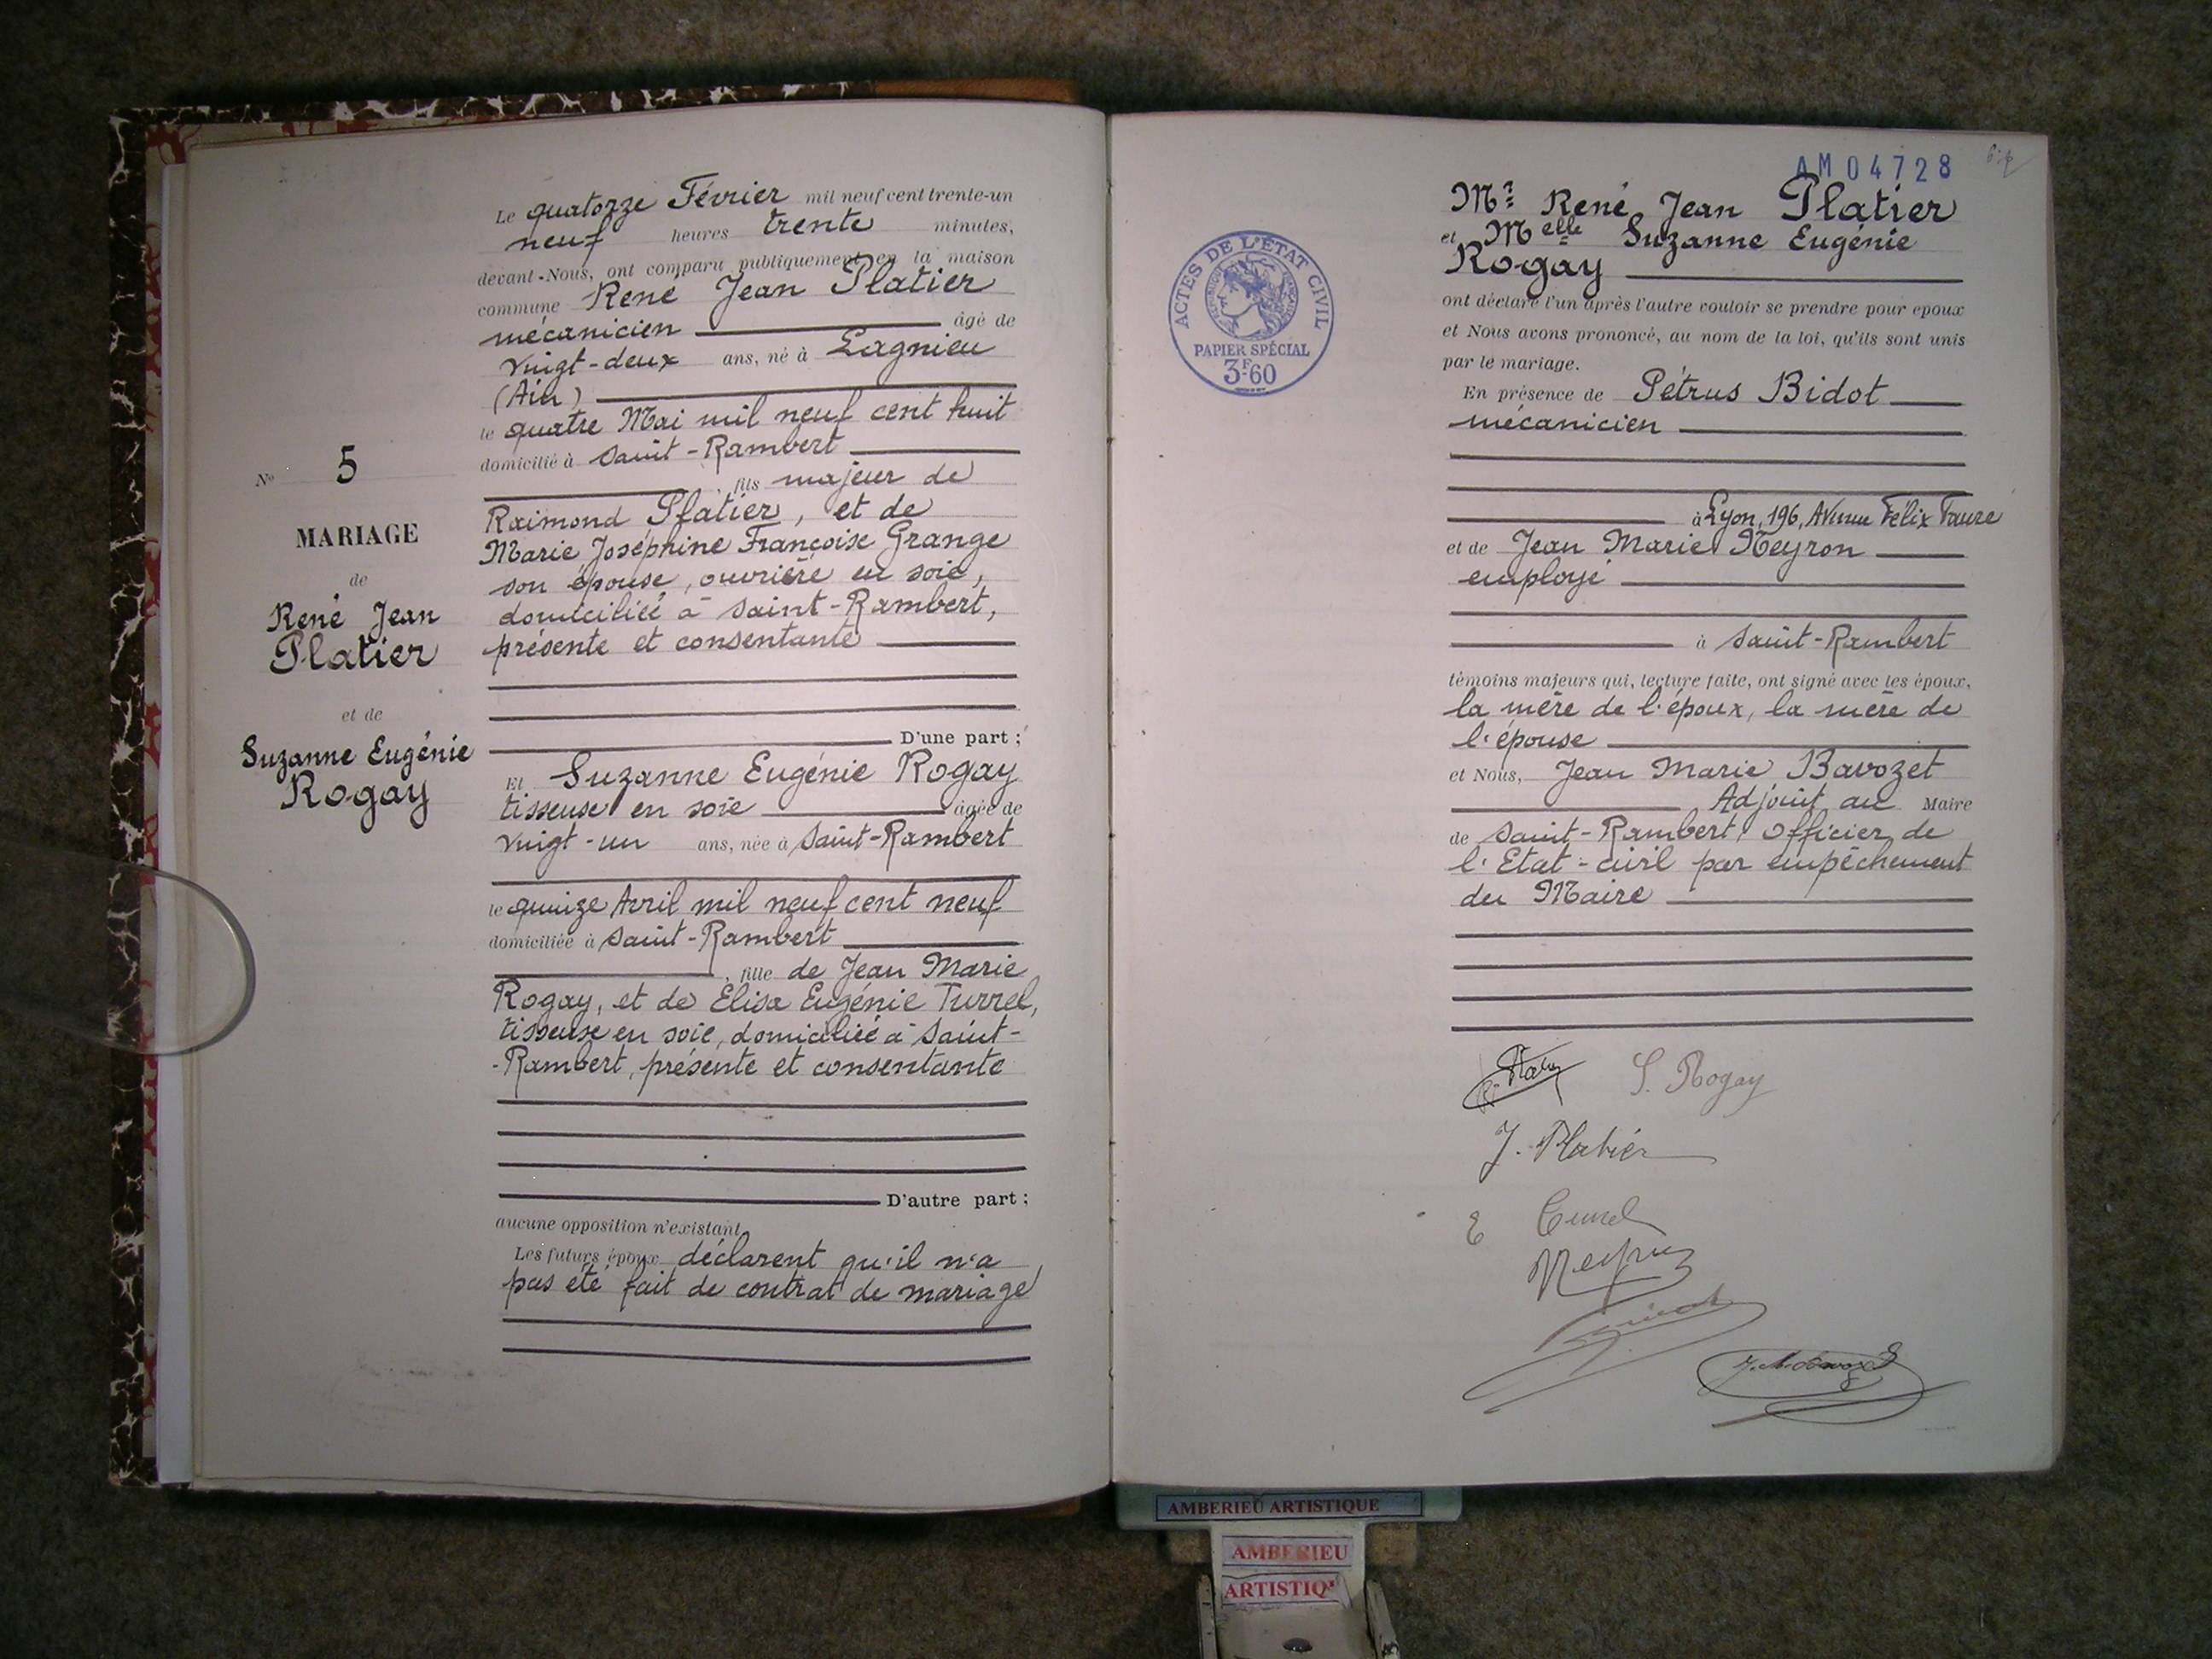 Le quatorze Février mil neuf cent trente-un
neuf heures trente minutes,
devant-Nous, ont comparu publiquement en la maison
commune René Jean Platier
mécanicien âgé de
vingt-deux ans, né à Lagnieu
(Ain)
le quatre Mai mil neuf cent huit
domicilié à Saint-Rambert
, fils majeur de
Raimond Platier, et de
Marie Joséphine Françoise Grange
son épouse, ouvrière en soie,
domiciliée à Saint-Rambert,
présente et consentante
D'une part ;
Et Suzanne Eugénie Rogay
tisseuse en soie âgée de
vingt-un ans, née à Saint-Rambert
le quinze Avril mil neuf cent neuf
domiciliée à Saint-Rambert
, fille de Jean Marie
Rogay, et de Élisa Eugénie Turrel,
tisseuse en soie, domiciliée à Saint-
-Rambert, présente et consentante
D'autre part ;
aucune opposition n'existant
Les futurs époux déclarent qu'il n'a
pas été fait de contrat de mariage
N° 5
MARIAGE
de
René Jean
Platier
et de
Suzanne Eugénie
Rogay
AM04728
Mr René Jean Platier
et Melle Suzanne Eugénie
Rogay
ont déclaré l'un après l'autre vouloir se prendre pour époux
et Nous avons prononcé, au nom de la loi, qu'ils sont unis
par le mariage.
En présence de Pétrus Bidot
mécanicien
à Lyon, 196, Avenue Félix Faure
et de Jean Marie Neyron
employé
à Saint-Rambert
témoins majeurs qui, lecture faite, ont signé avec les époux,
la mère de l'époux, la mère de
l'épouse
et Nous, Jean Marie Bavozet
Adjoint au Maire
de Saint-Rambert, Officier de
l'Etat-civil par empêchement
du Maire
S. Rogay
J. Platier
E Turrel
Neyron
ACTES DE L'ÉTAT CIVIL
PAPIER SPÉCIAL
3F60
AMBERIEU ARTISTIQUE
AMBERIEU
ARTISTIQ